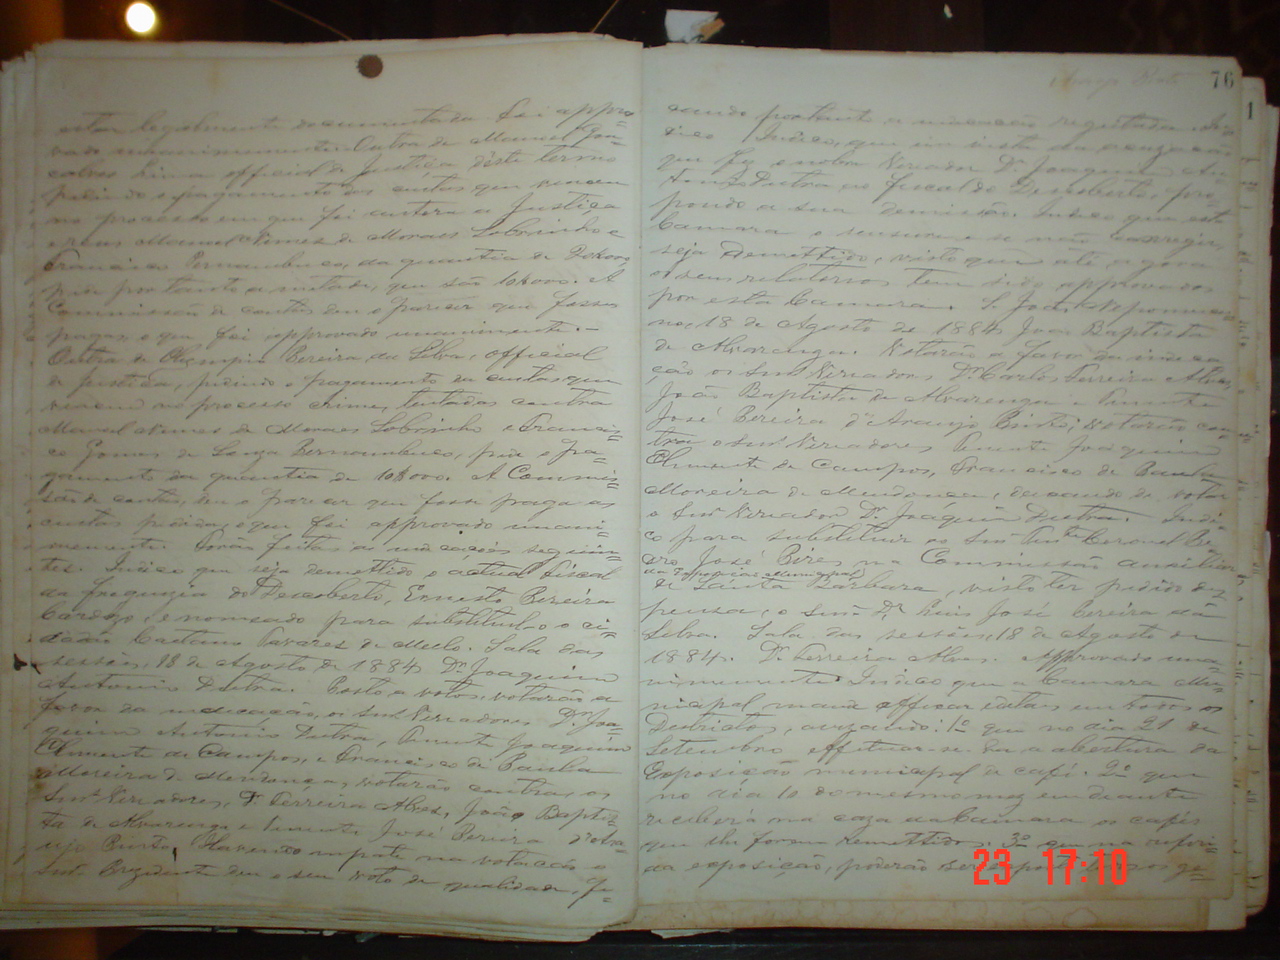 estar legalmente documentada foi appro=
vado unanimimente. Outra de Manoel Gon=
calves Lima official de Justiça deste termo
pedindo o pagamento das custas que venceu
no processo em que foi autora a Justiça
e reus Manoel Nunes de Moraes Sobrinho e
Francisco Pernambuco, da quantia de
pede portanto a metade, que são 10$000. A
Commissão de contas deu o parecer que fosse
pagas, o que foi approvado unanimente. -
Outra de Olympio Pereira da Silva, official
de Justiça, pedindo o pagamento da custas que
venceu no processo crime, tentados contra
Manoel Nunes de Moraes Sobrinho e Francis=
co Gomes de Souza Pernambuco, pede o pa=
gamento da quantia de 10$000. A Commis=
são de contas, deu o parecer que fosse pago as
custas pedidas, o que foi approvado unani=
memente. Forão feitas as indicações seguin=
tes. Indico que seja demettido o actual fiscal
da freguezia do Descoberto, Ernesto Pereira
Cardozo, e nomeado para substituil-o o ci=
dadão Caetano Tavares de Mello. Sala das
sessões, 18 de Agosto de 1884 Dr Joaquim
Antonio Dutra. Posto a votos, votarão a
favor da indicação, os Snrs Vereadores Dr Joa=
quim Antonio Dutra, Vicente Joaquim
Clemente de Campos, e Francisco de Paula
Moreira de Mendonça, votarão contra, os
Snrs Vereadores, Dr Ferreira Alves, João Baptis
ta de Alvarenga e Vicente José Pereira d'Ara=
ujo Porto. Havendo impate na votação o
Snr Prezidente deu o seu voto de qualidade, fi=
76
cando portanto a indicação regeitada. In
dico Indico, que em vista da accuzação
que fez o nobre Vereador Dr Joaquim An
tonio Dutra ao fiscal do Descoberto, pro=
pondo a sua demissão. Indico que esta
Camara o sensure e se não corregir,
seja Demettido, visto que até agora
os seus relatorios tem sido approvados
por esta Camara. S. João Nepomuce
no, 18 de Agosto de 1884 João Baptista
de Alvarenga. Votarão a favor da indica
ção os Snrs Vereadores Dr Carlos Ferreira Alves,
João Baptista de Alvarenga e Vicente
José Pereira d'Araujo Porto; votarão con
tra o Snrs Vereadores Vicente Joaquim
Clemente de Campos, Francisco de Paula
Moreira de Mendonça, deixando de votar
o Snr Vereador Dr Joaquim Dutra. Indi
co para substituir ao Snr Tenente Coronel Pe
dro José Pires na Commissão auxiliar
da Exposição Municipal
de Santa Barbara, visto ter pedido dis
pensa, o Snr Dr Luis José Pereira da
Silva. Sala das sessões, 18 de Agosto de
1884. Dr Ferreira Alves. Approvado una=
nimimente. Indico que a Camara Mu=
nicipal mande afficar editaes em todos os
Districtos, avizando: 1º que no dia 21 de
Setembro effituar-se-ha a abertura da
Exposição municipal de café. 2º que
no dia 10 do mesmo mez em diante
receberá na caza da Camara os cafés
que lhe forem remettidos. 3º que
da exposição, poderão ser
23 17:10